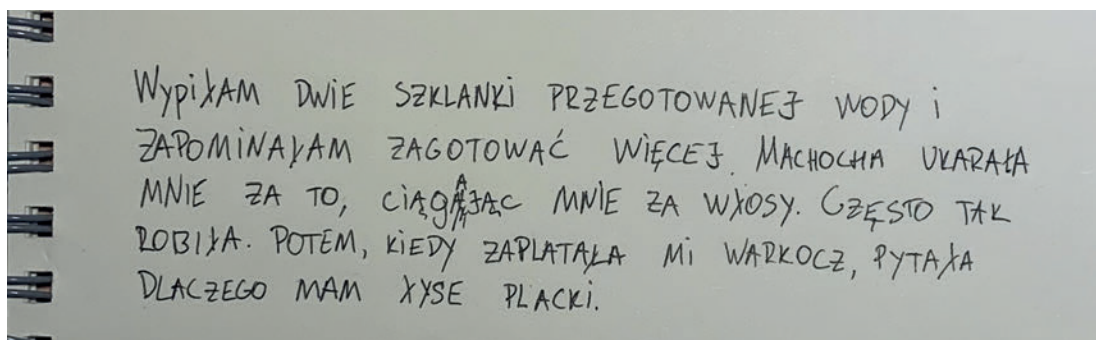 WypiłAM DWIE SZKLANKi PRZEGOTOWANEJ WODY i
ZAPOMiNAŁAM ZAGOTOWAĆ WIĘCEJ. MACHOCHA UKARAŁA
MNIE ZA TO, CiĄgAJĄC MNIE ZA WŁOSY. CZĘSTO TAK
ROBIŁA. POTEM, KiEDY ZAPLATAŁA Mi WARKOCZ, PYTAŁA
DLACZEGO MAM ŁYSE PLACKi.